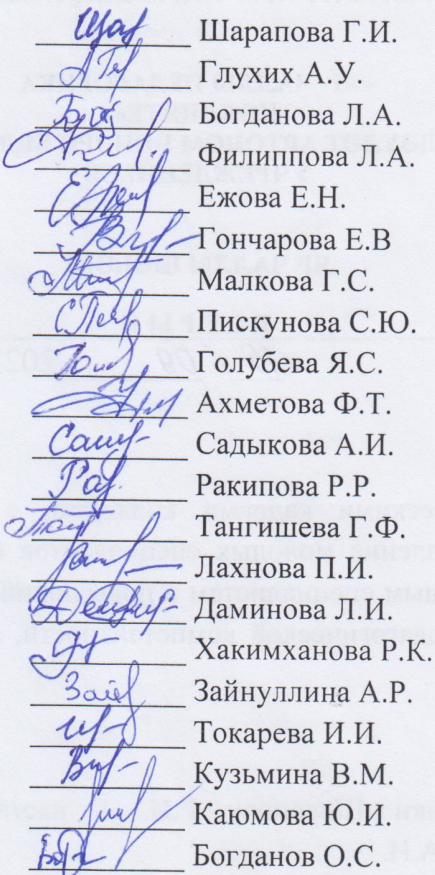 Шарапова Г.И.
Глухих А.У.
Богданова Л.А.
Филиппова Л.А.
Ежова Е.Н.
Гончарова Е.В
Малкова Г.С.
Пискунова С.Ю.
Голубева Я.С.
Ахметова Ф.Т.
Садыкова А.И.
Ракипова Р.Р.
Тангишева Г.Ф.
Лахнова П.И.
Даминова Л.И.
Хакимханова Р.К.
Зайнуллина А.Р.
Токарева И.И.
Кузьмина В.М.
Каюмова Ю.И.
Богданов О.С.